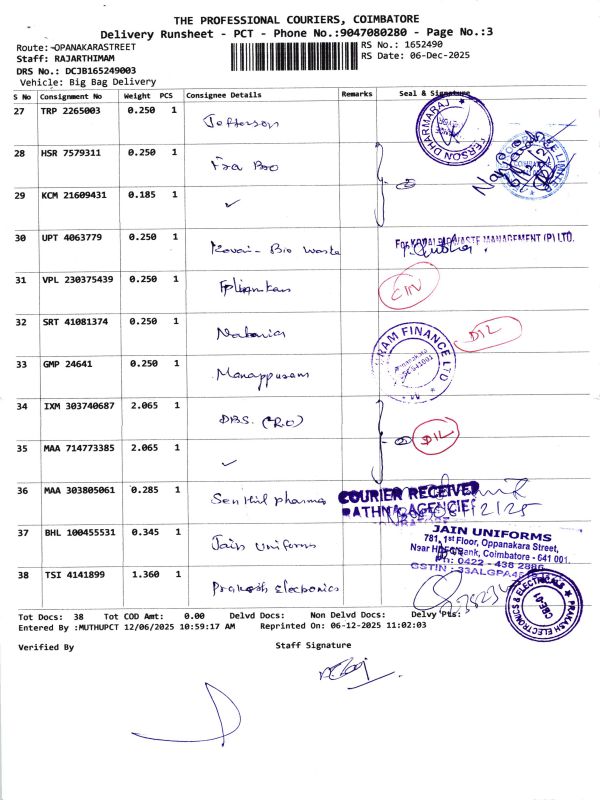 THE PROFESSIONAL COURIERS, COIMBATORE
Delivery Runsheet - PCT - Phone No.:9047080280 - Page No.:3
Route: OPANAKARASTREET RS No.: 1652490
Staff: RAJARTHIMAM RS Date: 06-Dec-2025
DRS No.: DCJB165249003
Vehicle: Big Bag Delivery
S No Consignment No Weight PCS Consignee Details Remarks Seal & Signature
27 TRP 2265003 0.250 1 Jefferson
28 HSR 7579311 0.250 1
29 KCM 21609431 0.185 1 ✓
30 UPT 4063779 0.250 1 Kovai - Bio Waste For KOVAI BIO WASTE MANAGEMENT (P) LTD.
31 VPL 230375439 0.250 1
32 SRT 41081374 0.250 1 D12
33 GMP 24641 0.250 1 Manappuram
34 IXM 303740687 2.065 1 DBS. (R.O)
35 MAA 714773385 2.065 1 ✓
36 MAA 303805061 0.285 1 Senthil pharma COURIER RECEIVED
RATHNA AGENCIES
37 BHL 100455531 0.345 1 Jain Uniforms JAIN UNIFORMS
781, 1st Floor, Oppanakara Street,
Near HDFC Bank, Coimbatore - 641 001.
Ph: 0422 - 438 2886
GSTIN : 33ALGPA
38 TSI 4141899 1.360 1 Prakash Electronics PRAKASH ELECTRONICS & ELECTRICALS
CBE-01
Tot Docs: 38 Tot COD Amt: 0.00 Delvd Docs: Non Delvd Docs: Delvy Pts:
Entered By :MUTHUPCT 12/06/2025 10:59:17 AM Reprinted On: 06-12-2025 11:02:03
Verified By Staff Signature